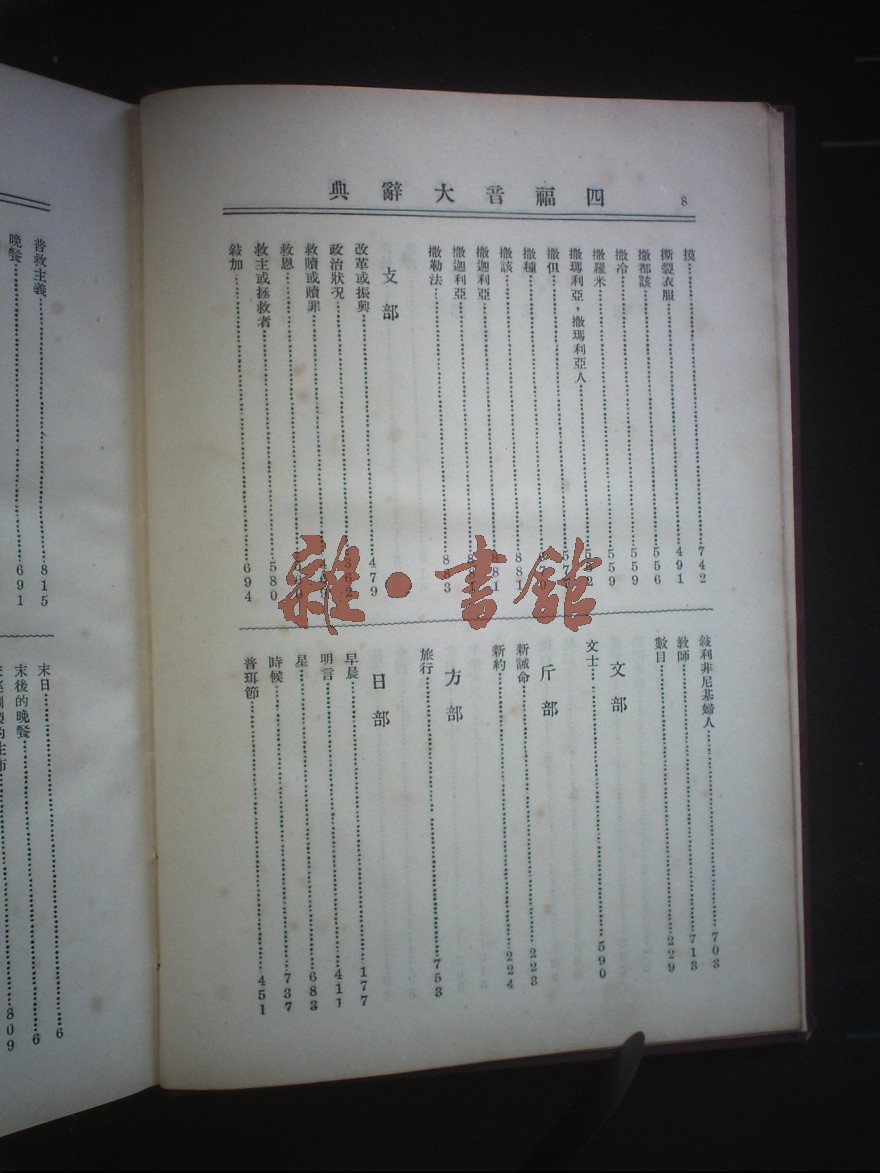 8
四福音大辭典
摸……742
撕裂衣服……491
撒都該……556
撒冷……559
撒羅米……559
撒瑪利亞，撒瑪利亞人……
撒但……
撒種……
撒該……881
撒迦利亞……881
撒迦利亞……
撒勒法……
攴部
改革或振興……479
政治狀況……362
救贖或贖罪……
救恩……
救主或拯救者……580
敍加……694
敍利非尼基婦人……703
教師……713
數目……229
文部
文士……590
斤部
新誡命……223
新約……224
方部
旅行……753
日部
早晨……177
明言……411
星……683
時候……737
普珥節……451
普救主義……815
晚餐……691
末日……6
末後的晚餐……6
809
雜·書館